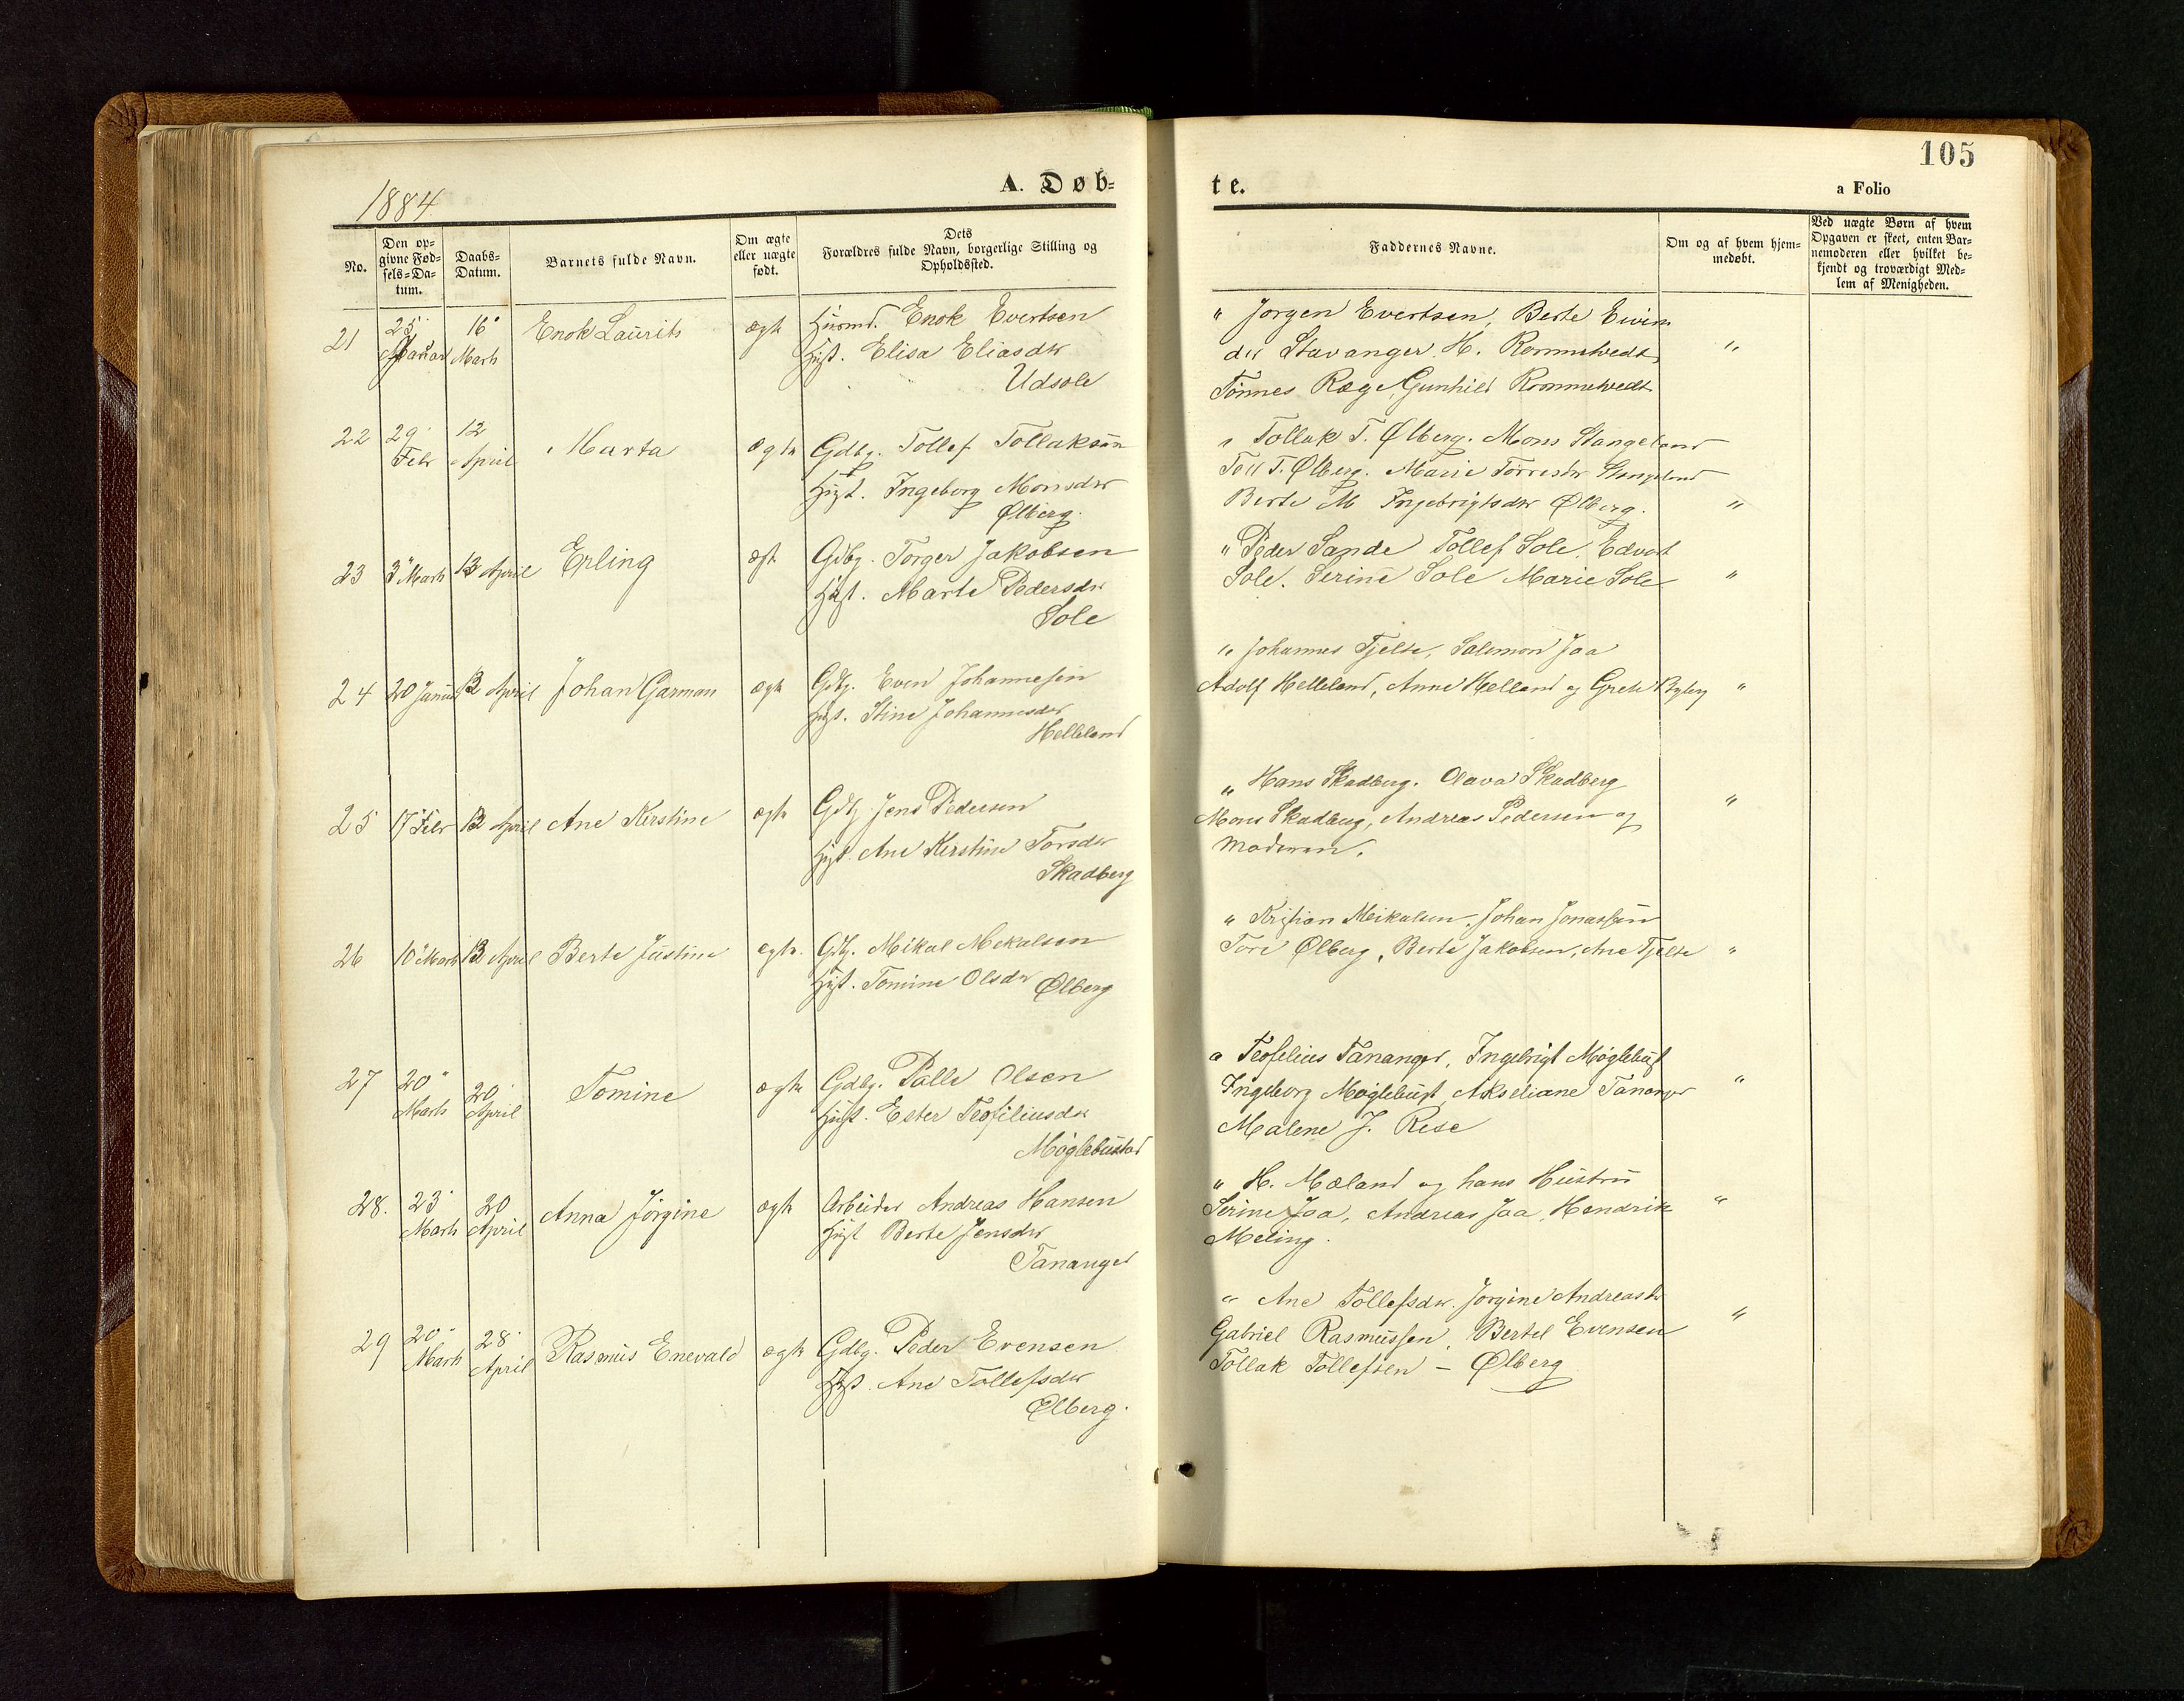 105
1884
A. Døb-
te.
a Folio
No.
Den op-
givne Fød-
sels-Da-
tum.
Daabs-
Datum.
Barnets fulde Navn.
Om ægte
eller uægte
født.
Dets
Forældres fulde Navn, borgerlige Stilling og
Opholdssted.
Faddernes Navne.
Om og af hvem hjem-
medøbt.
Ved uægte Børn af hvem
Opgaven er skeet, enten Bar-
nemoderen eller hvilket be-
kjendt og troværdigt Med-
lem af Menigheden.
21
25
Januar
16
Marts
Enok Laurits
ægte
Husmd. Enok Evertsen
Hust. Elisa Eliasdtr
Udsole
" Jørgen Evertsen, Berte
Stavanger. H. Rommetvedt,
Tønnes Ræge, Gunhild Rommetvedt
"
22
29
Febr
12
April
Marta
ægte
Gdbg. Tollef Tollaksen
Hust. Ingeborg Monsdtr
Ølberg.
" Tollak T. Ølberg. Mons Stangeland
T. Ølberg. Marie Stangeland
Berte M Ingebrigtsdtr Ølberg.
"
23
3 Marts
13 April
Erling
ægte
Gdbg. Torger Jakobsen
Hust. Marte Pedersdtr
Sole
" Peder Sande Tollef Sole, Edvart
Sole. Serine Sole Marie Sole
"
24
20 Januar
13 April
Johan Garman
ægte
Gdbg. Even Johannesen
Hust. Stine Johannesdtr
Helleland
" Johannes Tjelte, Salomon Jaa
Adolf Helleland, Anne Helland og Grete Byberg
"
25
17 Febr
13 April
Ane Kerstine
ægte
Gdbg Jens Pedersen
Hust. Ane Kerstine Torsdtr
Skadberg
" Hans Skadberg. Olava Skadberg
Mons Skadberg, Andreas Pedersen og
Moderen.
"
26
10 Marts
13 April
Berte Justine
ægte.
Gdbg. Mikal Mekalsen
Hust. Tomine Olsdtr Ølberg
" Kristian Meikalsen, Johan Jonassen
Tore Ølberg, Berte Jakobsen, Ane Tjelte
"
27
20
Marts
20
April
Tomine
ægte
Gdbg. Palle Olsen
Hust. Ester Teofiliusdtr
Møglebustad
" Teofilius Tananger, Ingebrigt Møglebust
Ingeborg Møglebust, Akseliane Tananger
Malene J. Rese
"
28.
23
Marts
20
April
Anna Jørgine
ægte
Arbeider Andreas Hansen
Hust Berte Jensdtr
Tananger
" H. Mæland og hans Hustru
Serine Jaa, Andreas Jaa, Hendrik
Meling.
"
29
20
Marts
28
April
Rasmus Enevald
ægte
Gdbg. Peder Evensen
Hust. Ane Tollefsdtr
Ølberg.
" Ane Tollefsdtr. Jørgine Andreasdtr
Gabriel Rasmussen, Bertel Evensen
Tollak Tollefsen – Ølberg
"